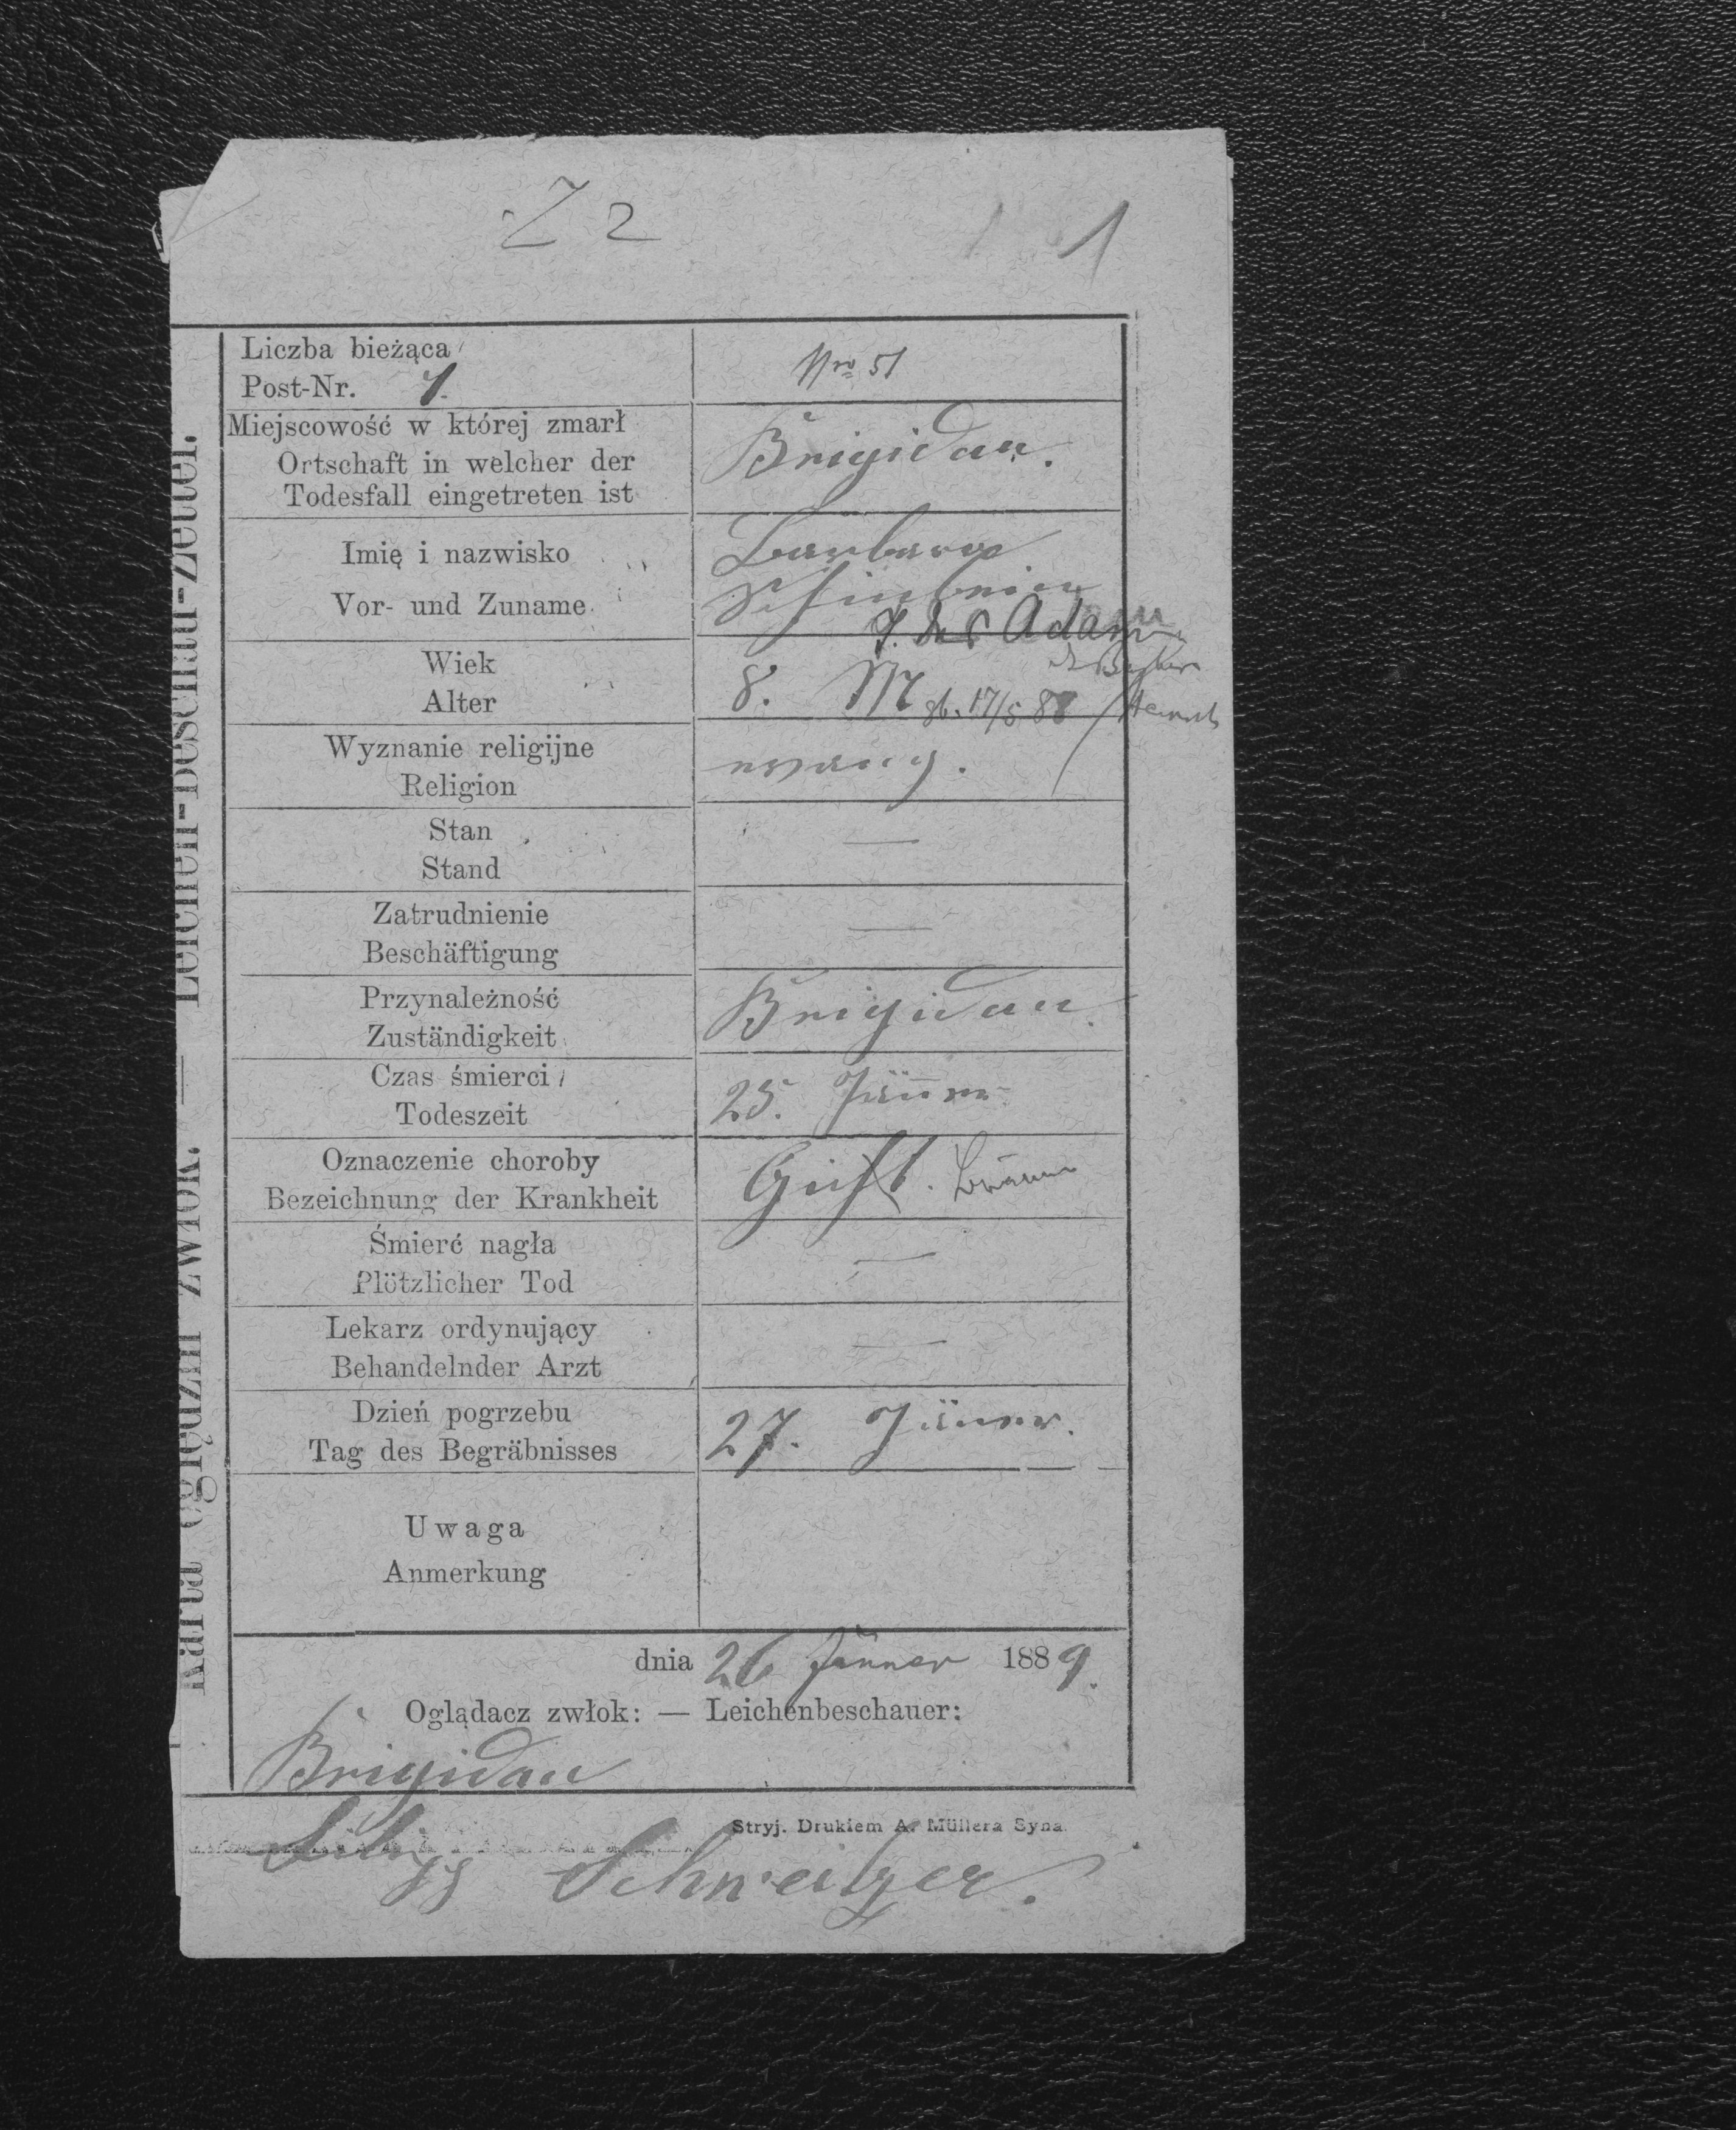 Z 2
1
Karta oględzin zwłok. — Leichen-Beschau-Zettel.
Liczba bieżąca
Post-Nr. 1.
Nro 51
Miejscowość w której zmarł
Ortschaft in welcher der
Todesfall eingetreten ist
Brigidau.
Imię i nazwisko
Vor- und Zuname
Barbara
T. des Adam
Wiek
Alter
8. M gb. 17/5 88
Wyznanie religijne
Religion
evang.
Stan
Stand
—
Zatrudnienie
Beschäftigung
—
Przynależność
Zuständigkeit
Brigidau.
Czas śmierci
Todeszeit
25. Jänner
Oznaczenie choroby
Bezeichnung der Krankheit
Śmierć nagła
Plötzlicher Tod
—
Lekarz ordynujący
Behandelnder Arzt
—
Dzień pogrzebu
Tag des Begräbnisses
27. Jänner.
Uwaga
Anmerkung
dnia 26 Jänner 1889.
Oglądacz zwłok: — Leichenbeschauer:
Brigidau
Stryj. Drukiem A. Müllera Syna
Schweitzer.